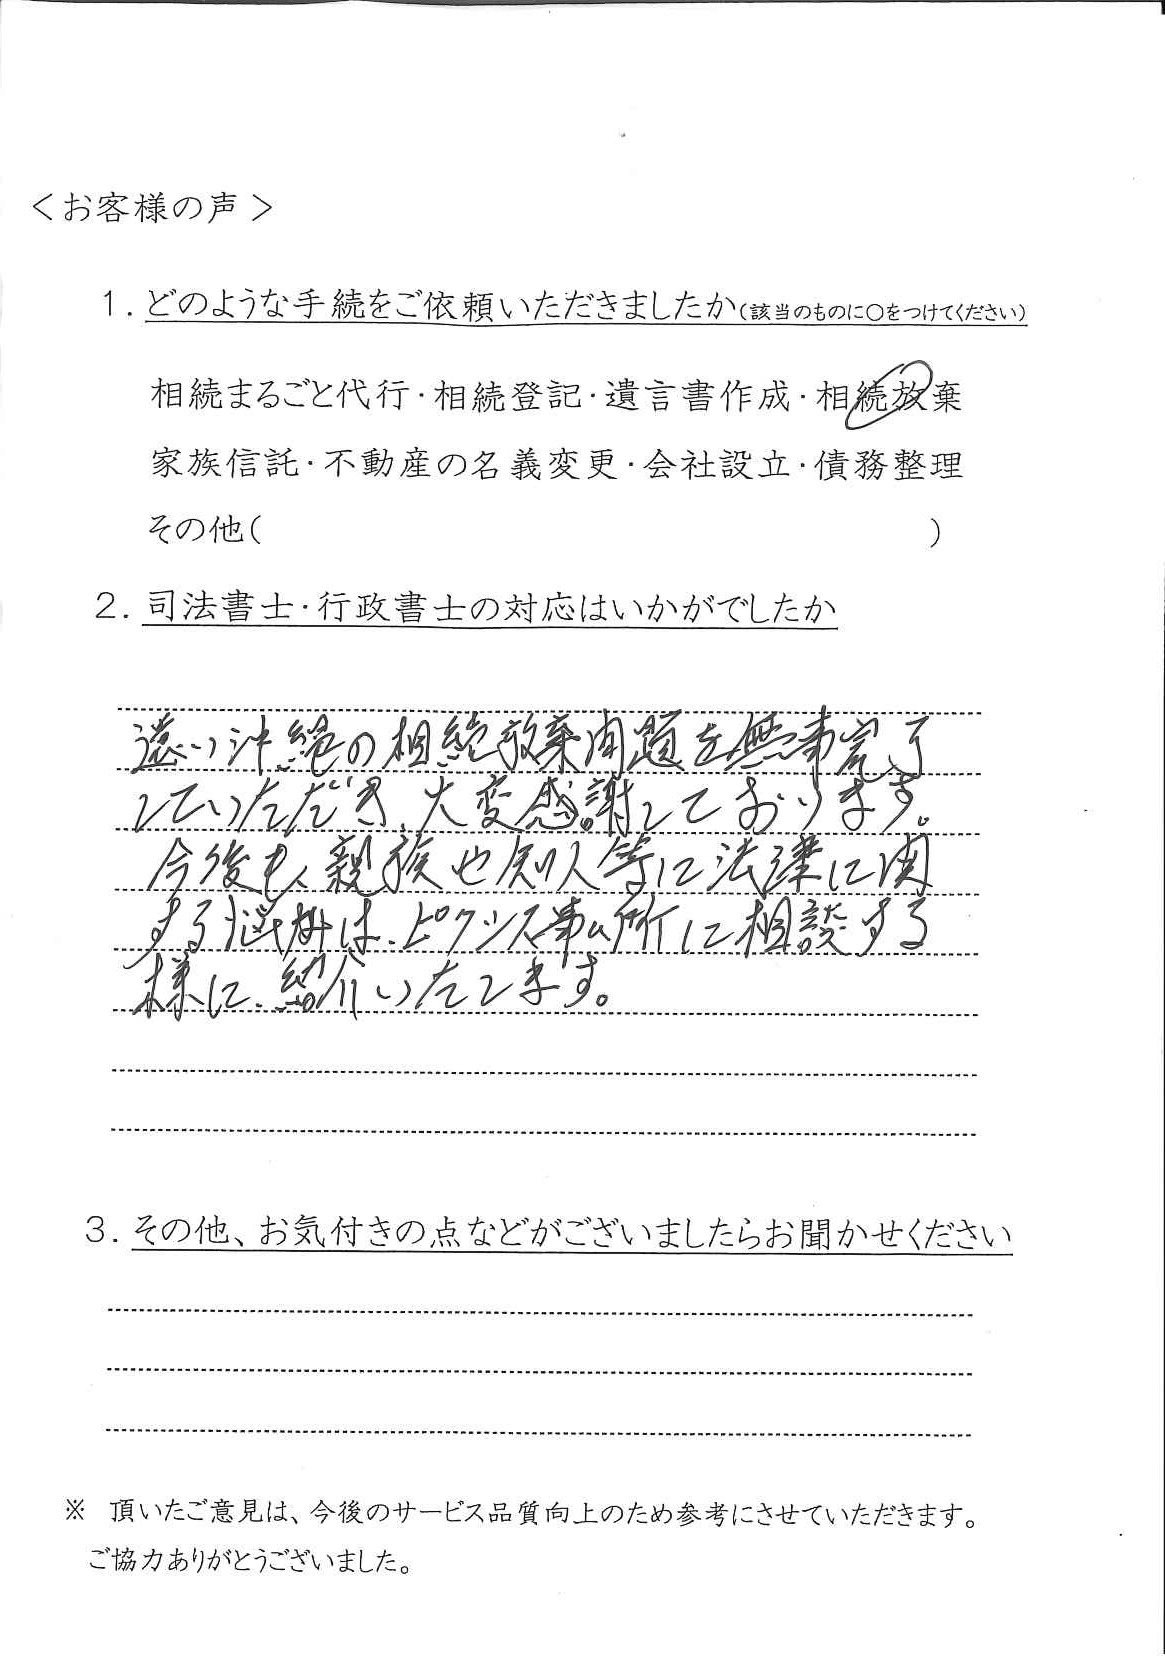 ＜お客様の声＞
1. どのような手続をご依頼いただきましたか(該当のものに○をつけてください)
相続まるごと代行・相続登記・遺言書作成・相続放棄
家族信託・不動産の名義変更・会社設立・債務整理
その他(　　　　　　　　　　)
2. 司法書士・行政書士の対応はいかがでしたか
遠い沖縄の相続放棄問題を無事完了
していただき、大変感謝しております。
今後も、親族や知人等に法律に関
する悩みは、ピクシス事ム所に相談する
様に、紹介いたします。
3. その他、お気付きの点などがございましたらお聞かせください
※ 頂いたご意見は、今後のサービス品質向上のため参考にさせていただきます。
ご協力ありがとうございました。